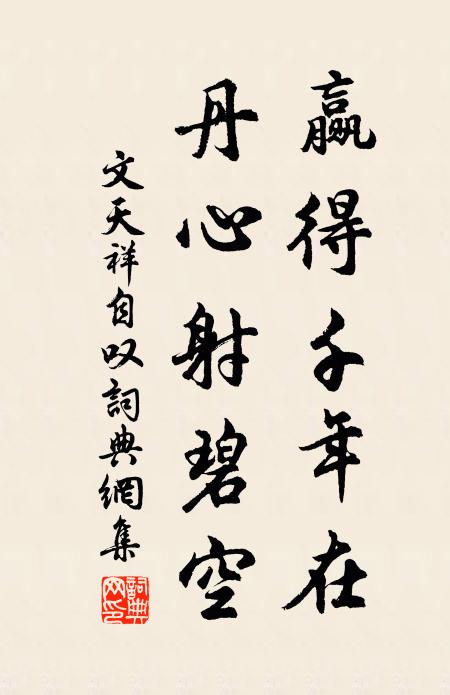 赢得千年在
丹心射碧空
文天祥自叹詞典網集
詞典
网印